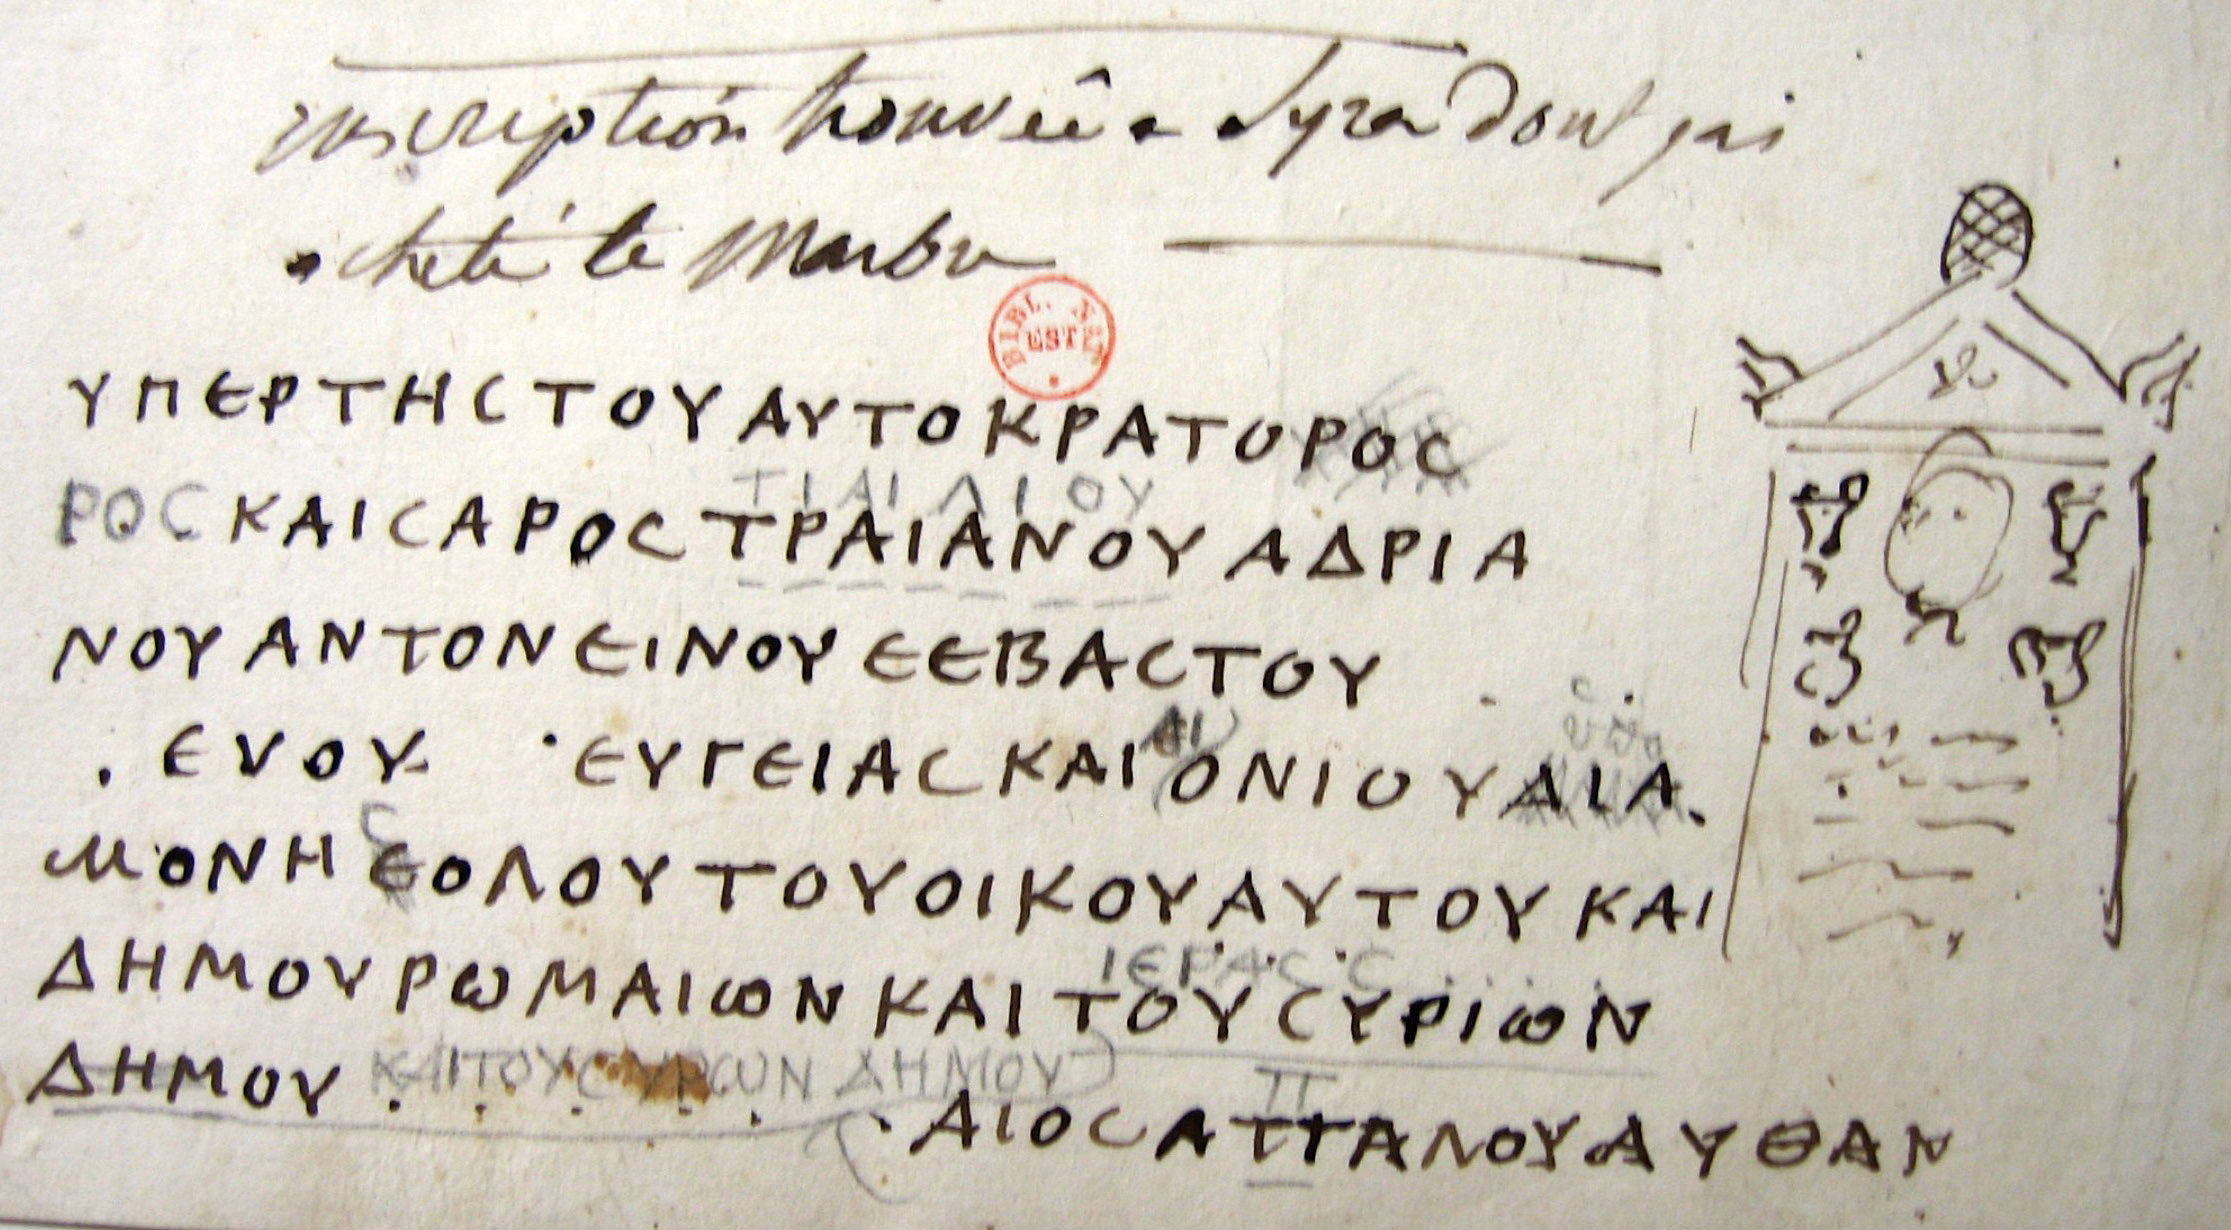 inscription trouvée a Syra dont jai
acheté le Marbre
BIBL. NAT.
EST
ΥΠΕΡΤΗCΤΟΥΑΥΤΟΚΡΑΤΟΡΟC
ΤΙΑΙΛΙΟΥ
ΡΟCΚΑΙCΑΡΟCΤΡΑΙΑΝΟΥΑΔΡΙΑ
ΝΟΥΑΝΤΟΝΕΙΝΟΥΕΕΒΑCΤΟΥ
ΑΙ
. ΕΥΟΥ ΕΥΓΕΙΑCΚΑΙΟΝΙΟΥΔΙΑ
C
ΜΟΝΗΕΟΛΟΥΤΟΥΟΙΚΟΥΑΥΤΟΥΚΑΙ
ΙΕΡΑC C
ΔΗΜΟΥΡΩΜΑΙΩΝΚΑΙΤΟΥCΥΡΙΩΝ
ΚΑΙΤΟΥCΥΡΙΩΝ ΔΗΜΟΥ
Π
ΔΗΜΟΥ . . . . . . ΑΙΟCΑΤΤΑΛΟΥΑΥΘΑΝ